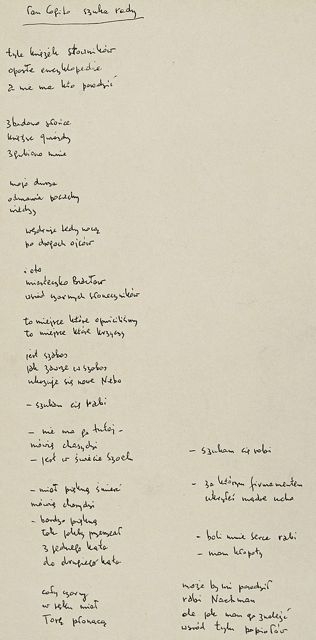 Pan Cogito szuka rady
tyle książek słowników
opasłe encyklopedie
a nie ma kto poradzić
zbadano słońce
księżyc gwiazdy
zgubiono mnie
moja dusza
odmawia pociechy
wiedzy
wędruje tedy nocą
po drogach ojców
i oto
miasteczko Bracław
wśród czarnych słoneczników
to miejsce które opuściliśmy
to miejsce które krzyczy
jest szabas
jak zawsze w szabas
ukazuje się nowe Niebo
– szukam cię rabi
– nie ma go tutaj –
mówią chasydzi
– jest w świecie
– miał piękną śmierć
mówią chasydzi
– bardzo piękną
tak jakby przeszedł
z jednego kąta
do drugiego kąta
cały czarny
w ręku miał
Torę płonącą
– szukam cię rabi
– za którym firmamentem
ukryłeś mądre ucho
– boli mnie serce rabi
– mam kłopoty
może by mi poradził
rabi Nachman
ale jak mam go znaleźć
wśród tylu popiołów